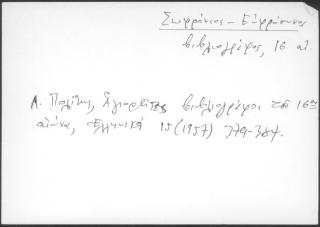 Σωφρόνιος - Εὐφρόσυνος
βιβλιογράφος, 16 αἰ.
Λ. Πολίτης, Ἁγιορεῖτες βιβλιογράφοι τοῦ 16ου
αἰώνα, Ἑλληνικά 15 (1957) 379-384.